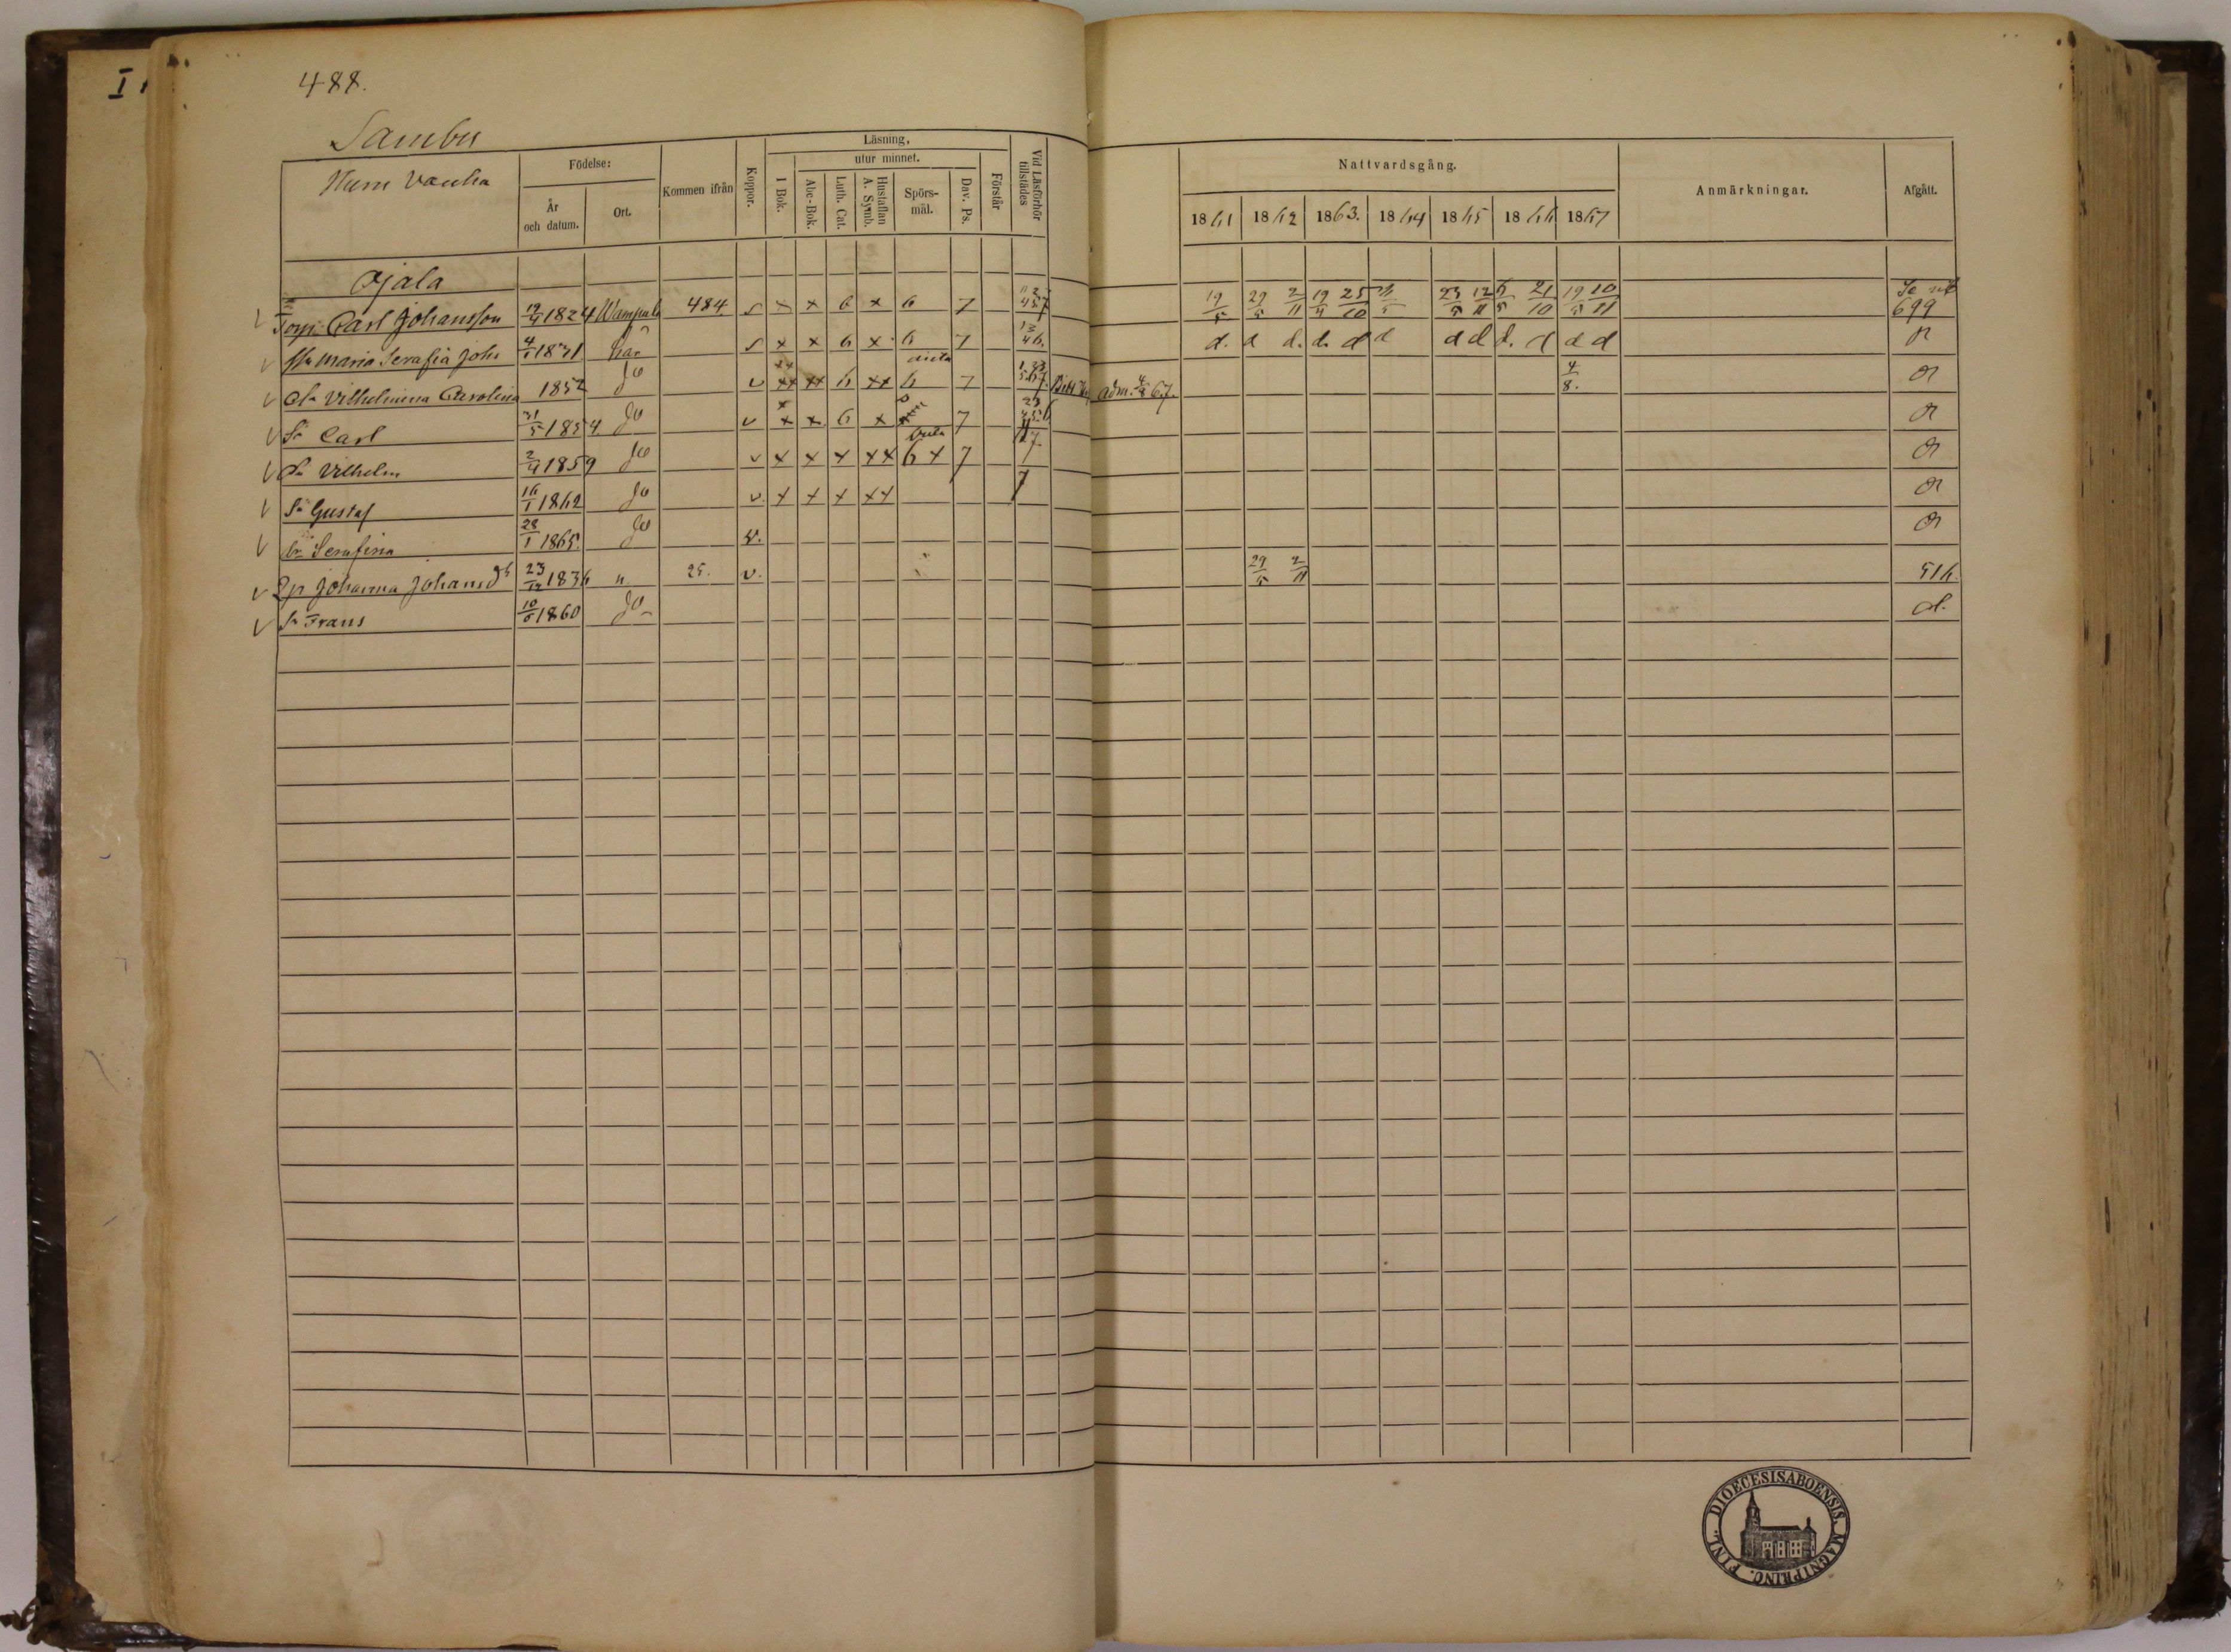 488.
Sambu
Hurri Vanha
Födelse:
År
och datum.
Ort.
Kommen ifrån
Koppor.
Läsning.
I Bok.
utur minnet.
Abc-Bok.
Luth. Cat.
Hustaflan
A. Symb.
Spörs-
mål.
Dav. Ps.
Förstår
Vid Läsförhör
tillstädes
Nattvardsgång.
1861 1862 1863. 1864 1865 1866 1867
Anmärkningar.
Afgått.
Ojala
Torp. Carl Johansson 19/9 1824 Wampula 484 s x x 6 x 6 7 19/5 29/5 2/11 19/4 25/10 23/5 12/11 21/10 19/5 10/11 699
Hu Maria Serafia Johs 4/5 1831 här s x x 6 x 6 7 d. d d. d. d d d d d. d d d
Dr Vilhelmina Carolina 1852 Jo v xx xx 6 xx 6 7 adm. 4/8 67. 4/8.
Sn Carl 31/5 1854 Jo v x x 6 x 7
Sn Vilhelm 2/4 1859 Jo v x x x xx 6 x 7 7
Sn Gustaf 16/5 1862 Jo v. x x x xx 7
Dr Serafina 28/1 1865. Jo v.
Johanna Johansdr 23/12 1836 25. v. 29/5 2/11 516.
Sn Frans 10/5 1860 Jo
DIOECESIS ABOENSIS. MAGNI PRINC. FINL.